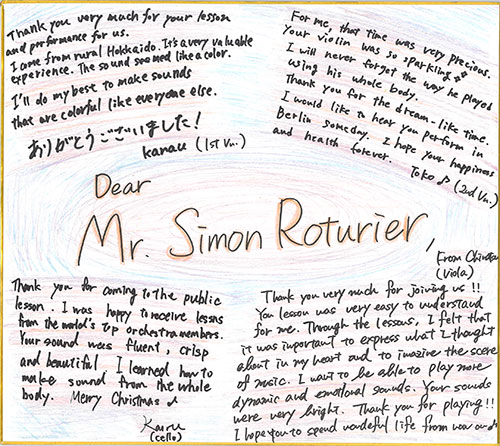 Thank you very much for your lesson
and performance for us.
I come from rural Hokkaido. It's a very valuable
experience. The sound seemed like a color.
I'll do my best to make sounds
that are colorful like everyone else.
ありがとうございました!
kanau (1st Vn.)
For me, that time was very precious.
Your violin was so sparkling
I will never forget the way he played
using his whole body.
Thank you for the dream-like time.
I would like to hear you perform in
Berlin someday. I hope your happiness
and health forever.
Toko♪ (2nd Vn.)
Dear
Mr. Simon Roturier,
Thank you for coming to the public
lesson. I was happy to receive lessns
from the world's top orchestra members.
Your sound was fluent, crisp
and beautiful I learned how to
make sound from the whole
body. Merry Christmas♪
Kaiu
(cello)
From
(Viola)
Thank you very much for joiving us!!
You lesson was very easy to understand
for me. Through the lessons, I felt that
it was important to express what I thought
about in my heart and to imagine the scene
of music. I want to be able to play more
dynamic and emotional sounds. Your sounds
were very bright. Thank you for playing!!
I hope you to spend life from now on